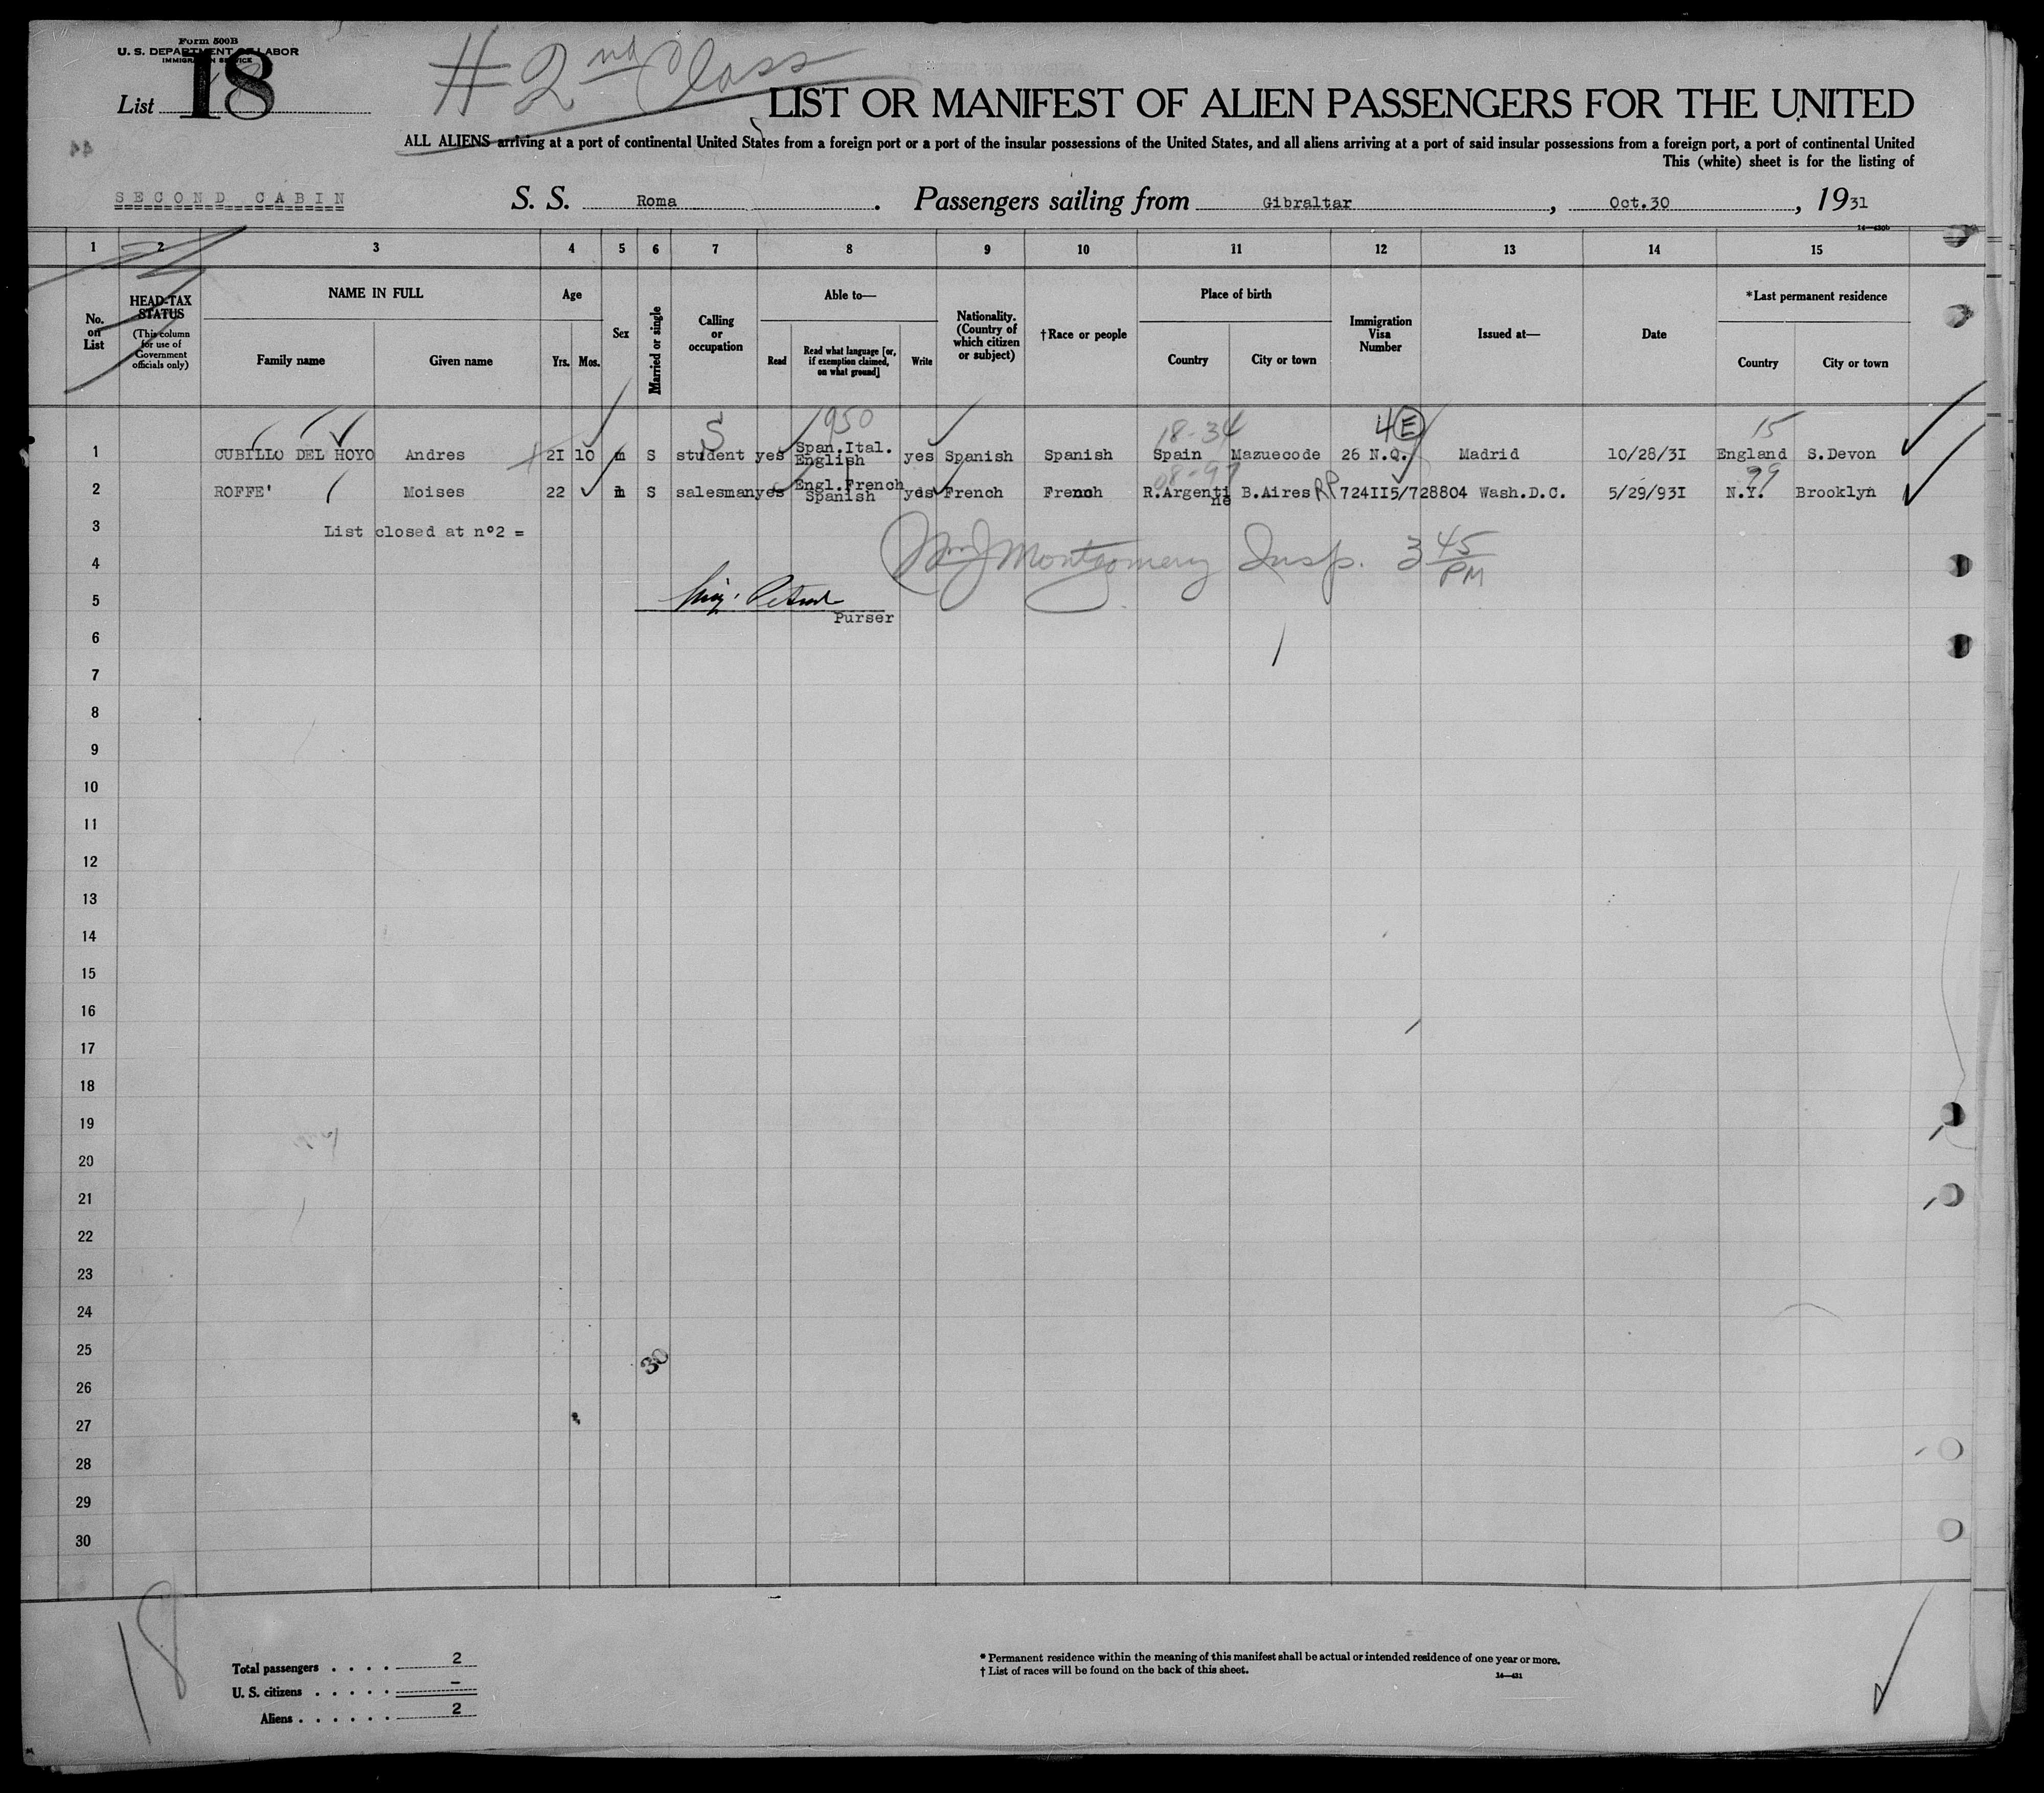 Form 500B
U. S. DEPARTMENT OF LABOR
IMMIGRATION SERVICE
List 18
# 2nd Class
LIST OR MANIFEST OF ALIEN PASSENGERS FOR THE UNITED
ALL ALIENS arriving at a port of continental United States from a foreign port or a port of the insular possessions of the United States, and all aliens arriving at a port of said insular possessions from a foreign port, a port of continental United
This (white) sheet is for the listing of
44
SECOND CABIN S. S. Roma . Passengers sailing from Gibraltar , Oct.30 , 1931
14—430b
1 2 3 4 5 6 7 8 9 10 11 12 13 14 15
No. on List
HEAD-TAX STATUS (This column for use of Government officials only)
NAME IN FULL
Family name Given name
Age
Yrs. Mos.
Sex
Married or single
Calling or occupation
Able to—
Read
Read what language [or, if exemption claimed, on what ground]
Write
Nationality. (Country of which citizen or subject)
†Race or people
Place of birth
Country City or town
Immigration Visa Number
Issued at—
Date
*Last permanent residence
Country City or town
S 950 18-34 4 E 15
1 CUBILLO DEL HOYO Andres 2I 10 m S student yes Span.Ital. English yes Spanish Spanish Spain Mazuecode 26 N.Q. Madrid 10/28/3I England S.Devon
08-99 99
2 ROFFE' Moises 22 m S salesman yes Engl.French Spanish yes French French R.Argentine B.Aires RP 724II5/728804 Wash.D.C. 5/29/93I N.Y. Brooklyn
3 List closed at nº2 =
Wm J Montgomery Insp. 3 45 PM
4
5
Purser
6
7
8
9
10
11
12
13
14
15
16
17
18
19
20
21
22
23
24
25
30
26
27
28
29
30
18
Total passengers . . . . 2
U. S. citizens . . . . . –
Aliens . . . . . . 2
* Permanent residence within the meaning of this manifest shall be actual or intended residence of one year or more.
† List of races will be found on the back of this sheet.
14—431